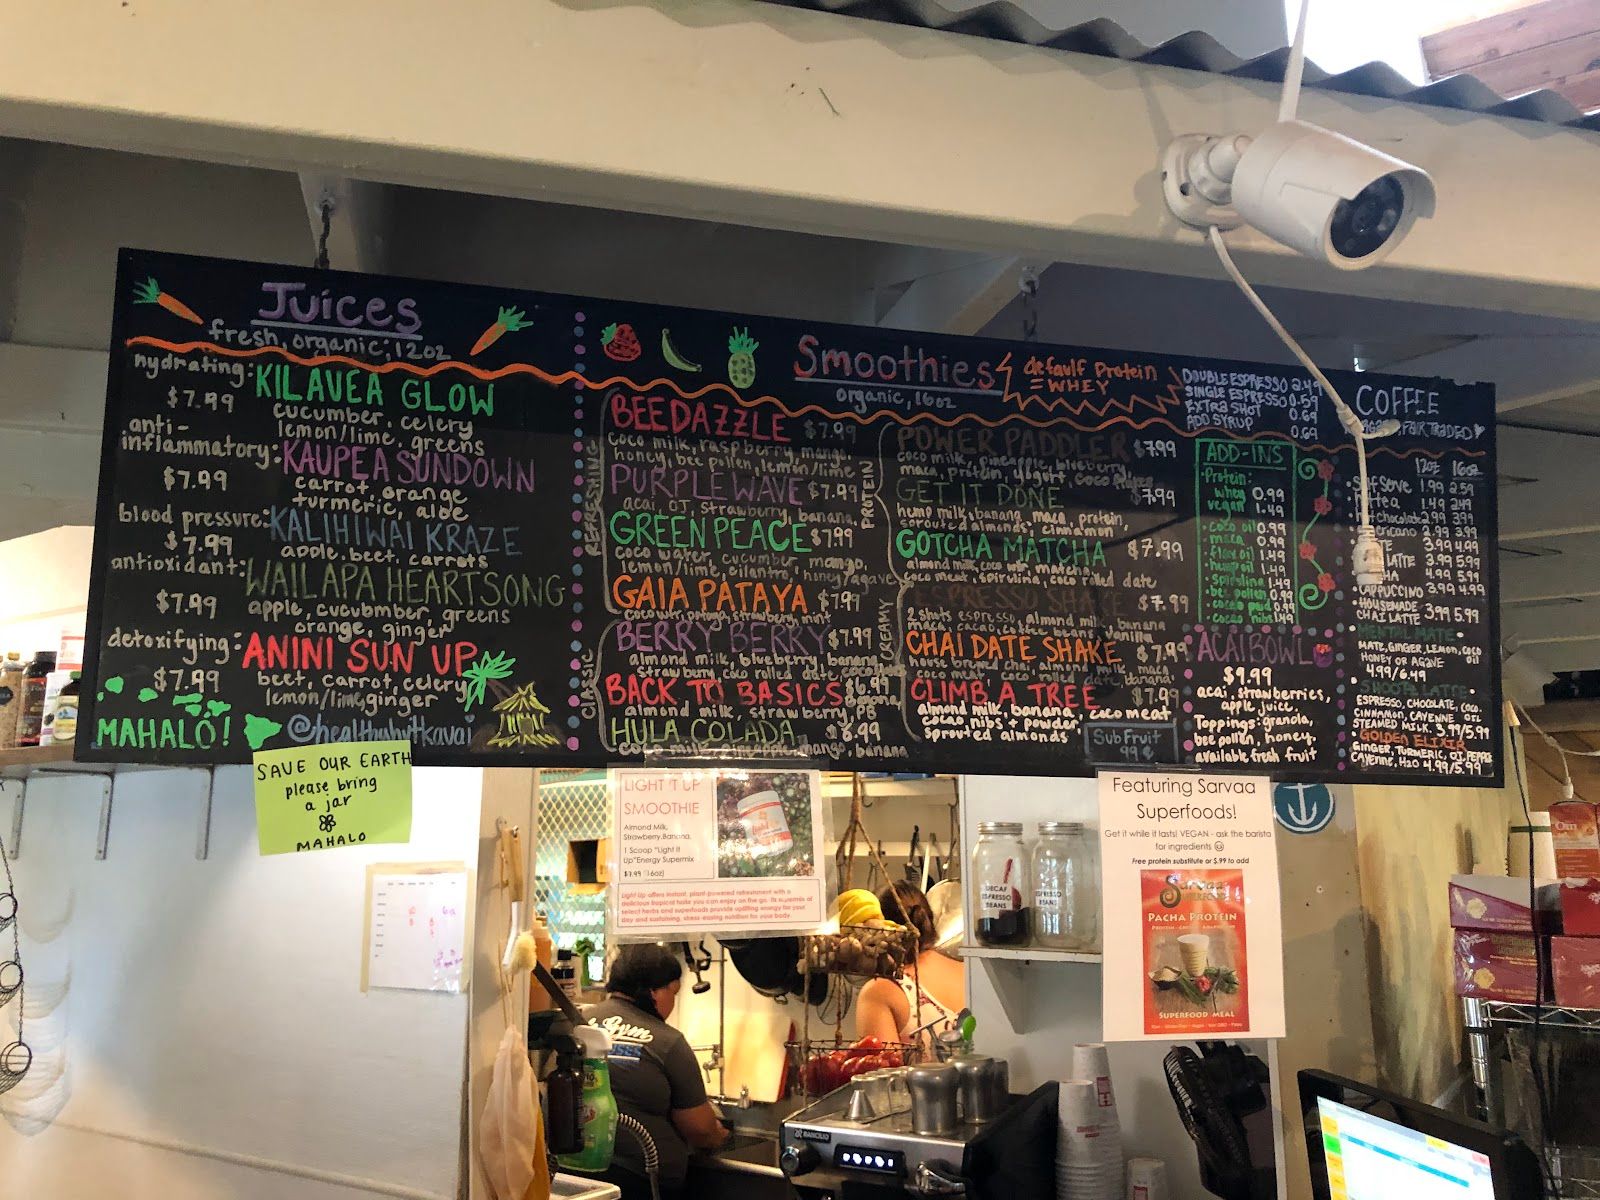 Juices
fresh, organic, 12oz
hydrating: KILAVEA GLOW
$7.99
cucumber, celery
lemon/lime, greens
anti-
inflammatory: KAUPEA SUNDOWN
$7.99
carrot, orange
turmeric, aloe
blood pressure: KALIHIWAI KRAZE
$7.99
apple, beet, carrots
antioxidant: WAILAPA HEARTSONG
$7.99
apple, cucubmber, greens
orange, ginger
detoxifying: ANINI SUN UP
$7.99
beet, carrot, celery
lemon/lime, ginger
MAHALO!
@healthyhutkauai
Smoothies
organic, 16oz
default Protein
= WHEY
REFRESHING
BEEDAZZLE $7.99
coco milk, raspberry, mango,
honey, bee pollen, lemon/lime
PURPLE WAVE $7.99
acai, OJ, strawberry, banana,
GREEN PEACE $7.99
coco water, cucumber, mango,
lemon/lime, cilantro, honey/agave
GAIA PATAYA $7.99
coco wtr, papaya, strawberry, mint
CLASSIC
BERRY BERRY $7.99
almond milk, blueberry, banana,
strawberry, coco rolled date, coco
BACK TO BASICS $6.99
almond milk, strawberry, PB
banana,
HULA COLADA $6.99
coco milk, pineapple, mango, banana
PROTEIN
POWER PADDLER $7.99
coco milk, pineapple, blueberry,
maca, protein, yogurt, coco flakes
GET IT DONE $7.99
hemp milk, banana, maca, protein,
sprouted almonds, cinnamon
GOTCHA MATCHA $7.99
almond milk, coco wtr, matcha
coco meat, spirulina, coco rolled date
CREAMY
ESPRESSO SHAKE $7.99
2 shots espresso, almond milk, banana
maca, cacao, coffee beans, vanilla
CHAI DATE SHAKE $7.99
house brewed chai, almond milk, maca
coco meat, coco rolled date, banana.
CLIMB A TREE $7.99
almond milk, banana, coco meat
cacao nibs + powder,
sprouted almonds
Sub Fruit
99¢
DOUBLE ESPRESSO 2.49
SINGLE ESPRESSO 0.59
EXTRA SHOT 0.69
ADD SYRUP 0.69
ADD-INS
• Protein:
whey 0.99
vegan 1.49
• coco oil 0.99
• maca 0.99
• flax oil 1.49
• hemp oil 1.49
• spirulina 1.49
• bee pollen 0.99
• cacao pwd 0.99
• cacao nibs 1.49
ACAI BOWL
$9.99
acai, strawberries,
apple juice.
Toppings: granola,
bee pollen, honey,
available fresh fruit
COFFEE
FAIR TRADED
12oz 16oz
Self Serve 1.99 2.59
1.49 2.49
2.99 3.99
2.99 3.99
3.99 4.99
LATTE 3.99 5.99
4.99 5.99
CAPPUCCINO 3.99 4.99
• HOUSEMADE
CHAI LATTE 3.99 5.99
MATE, GINGER, LEMON, COCO
OIL
HONEY OR AGAVE
4.99/6.49
ESPRESSO, CHOCOLATE, COCO
OIL
CINNAMON, CAYENNE
STEAMED MILK 3.99/5.99
• GOLDEN ELIXIR
GINGER, TURMERIC, OJ, PEPPER
CAYENNE, H2O 4.99/5.99
SAVE OUR EARTH
please bring
a jar
MAHALO
LIGHT IT UP
SMOOTHIE
Almond Milk,
Strawberry, Banana,
1 Scoop "Light It
Up" Energy Supermix
$7.99 (16oz)
Light Up offers instant, plant-powered refreshment with a
delicious tropical taste you can enjoy on the go. Its supermix of
select herbs and superfoods provide uplifting energy for your
day and sustaining, stress-easing nutrition for your body.
DECAF
ESPRESSO
BEANS
ESPRESSO
BEANS
Featuring Sarvaa
Superfoods!
Get it while it lasts! VEGAN - ask the barista
for ingredients ☺
Free protein substitute or $.99 to add
Sarvaa
PACHA PROTEIN
SUPERFOOD MEAL
RANCILIO